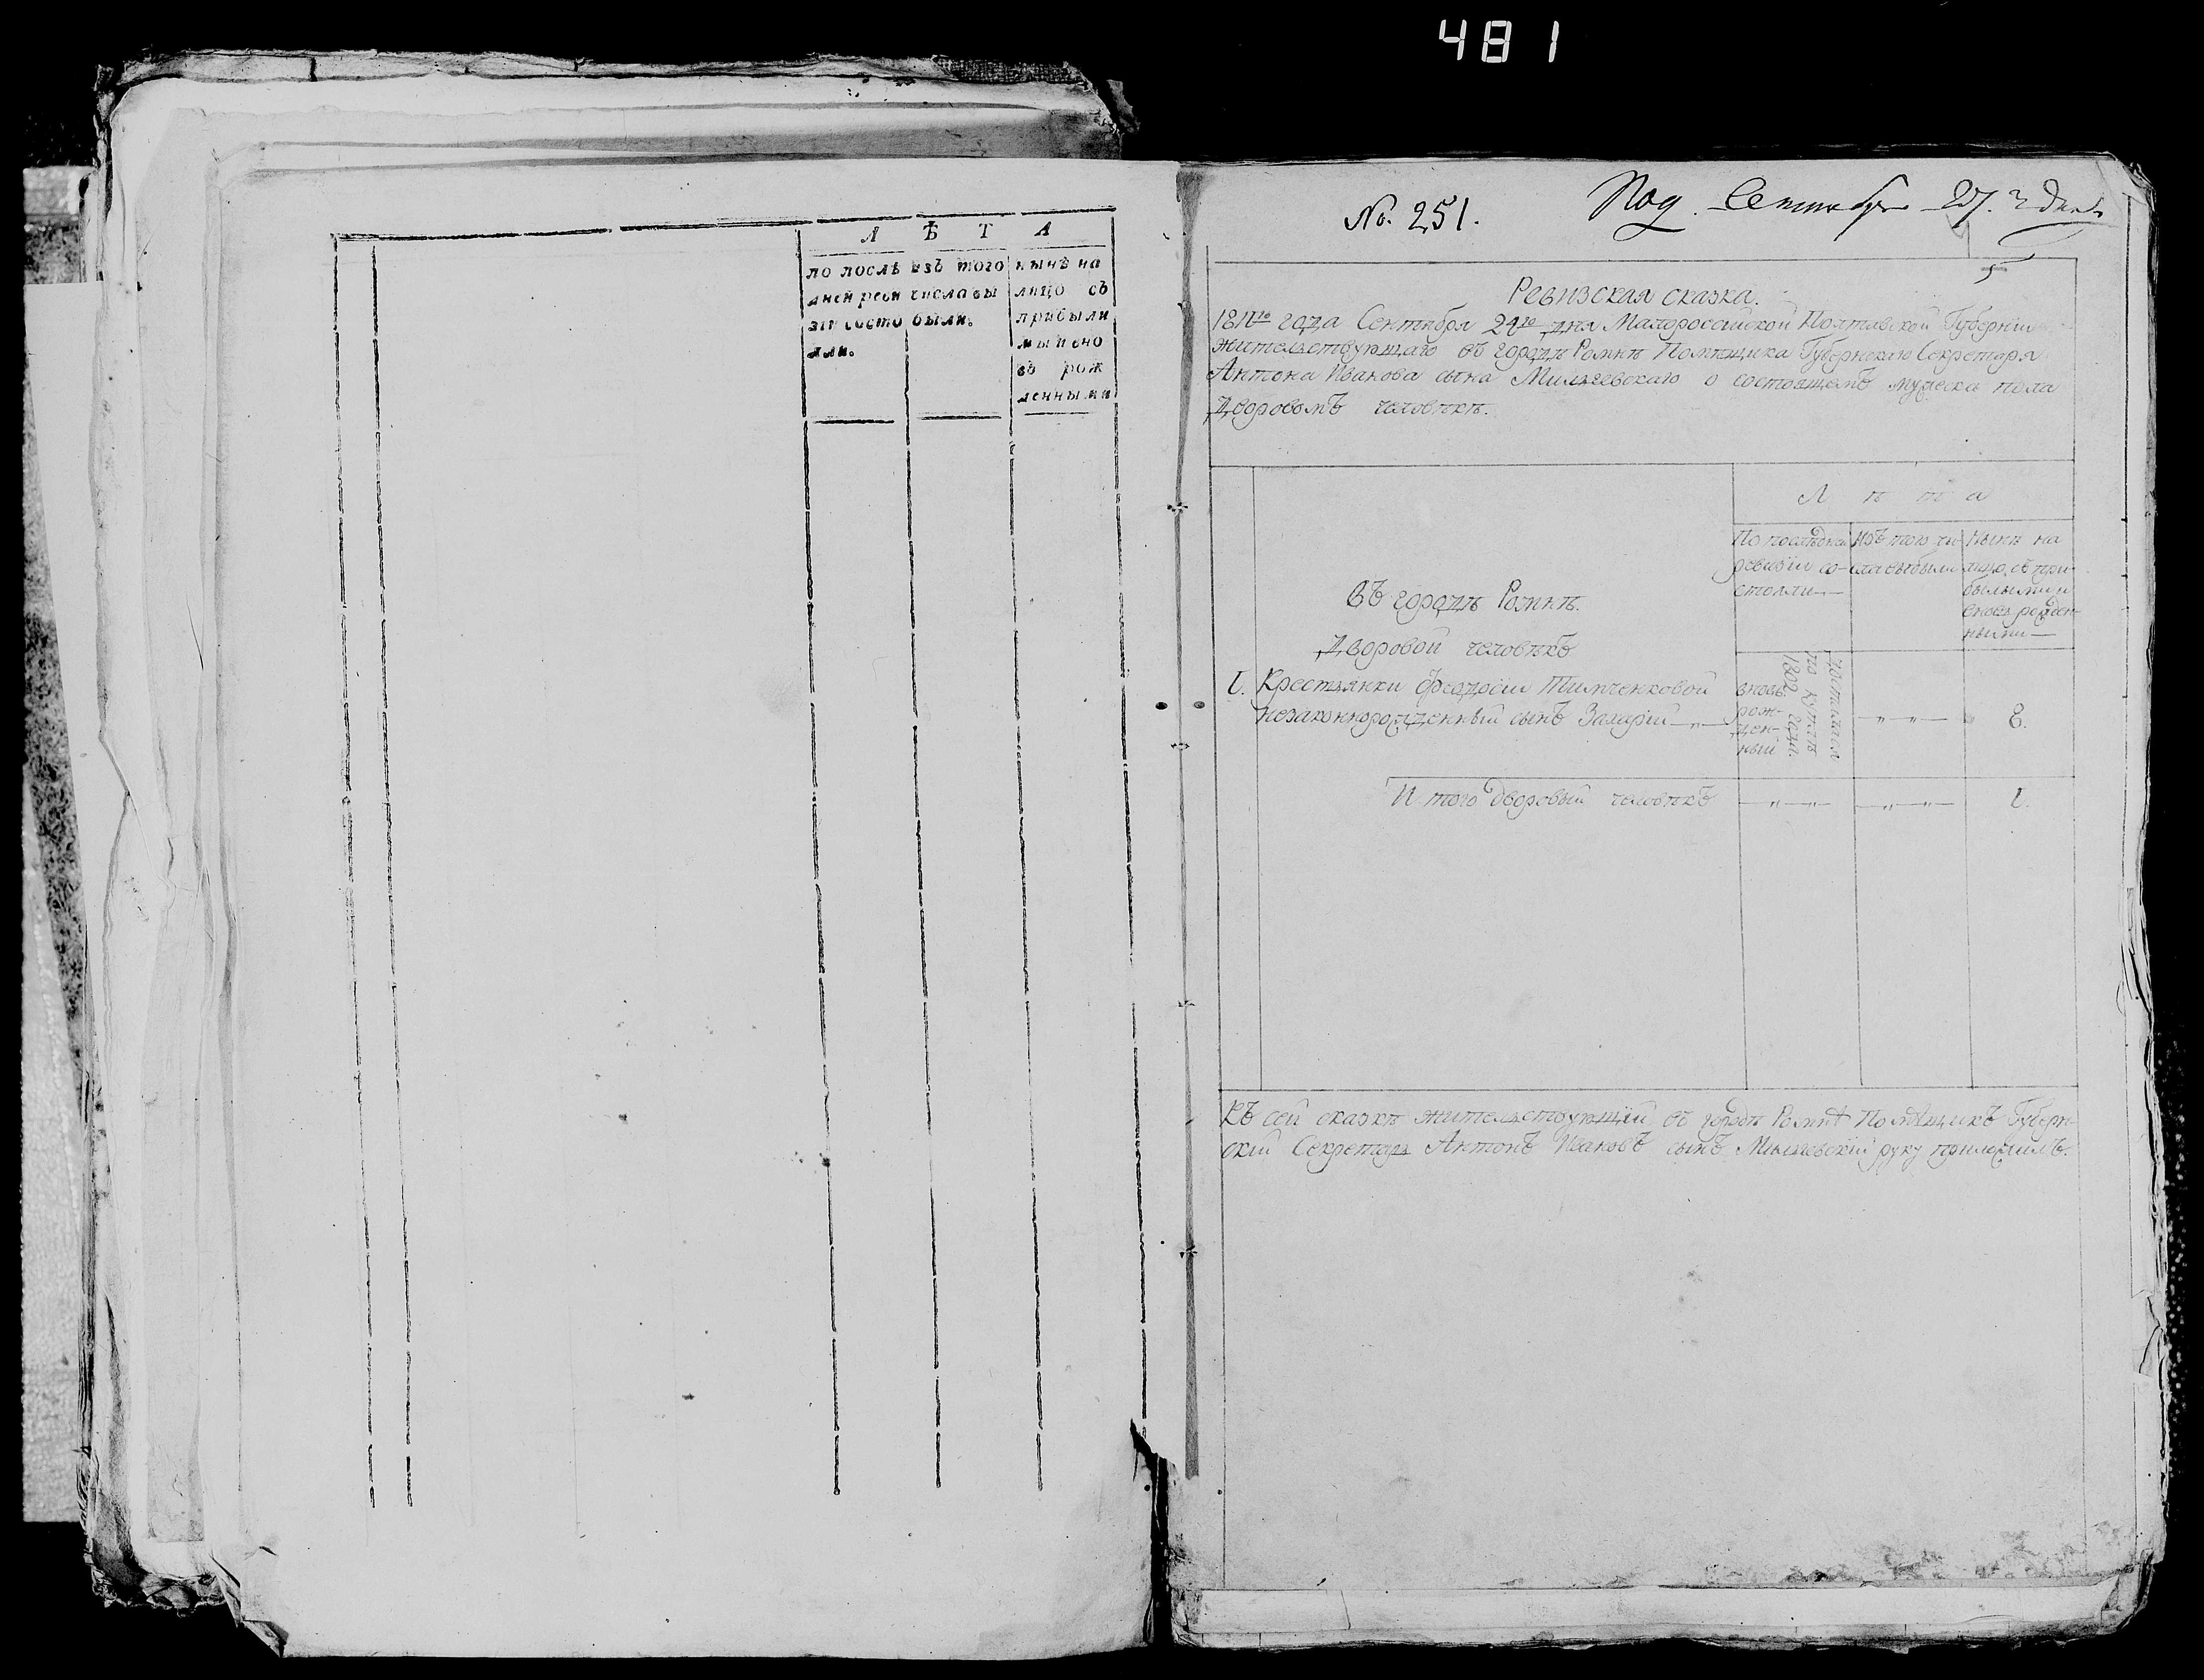 481
Л Ѣ Т А
по послѣ
дней реви
зіи состо
яли.
изъ того
числа вы
были.
нынѣ на
лицо съ
прибыли
ми и вно
въ рож
денными
No. 251.
Под. Сентября 27. дня
5
Ревизская сказка.
1811го года Сентября 24го дня Малороссійской Полтавской Губерніи
жительствующаго въ городѣ Ромнѣ Помѣщика Губернскаго Секретаря
Антона Иванова сына о состоящемъ мужеска пола
Дворовомъ человѣкѣ.
Л ѣ т а
По послѣдней
ревизіи со-
стояли
Изъ того чи-
сла выбыли
Нынѣ на
лицо съ при-
былыми и
вновь рожден-
ными
Въ городѣ Ромнѣ.
Дворовой человѣкъ
1. Крестьянки Феодосіи Тимченковой
незаконнорожденный сынъ Захарій
вновь
рож-
ден-
ный
достался
по купли
1809 года.
8.
И того дворовый человѣкъ
1.
Къ сей сказкѣ жительствующій въ городѣ Ромнѣ Помѣщикъ Губерн-
скій Секретарь Антонъ Ивановъ сынъ руку приложилъ.